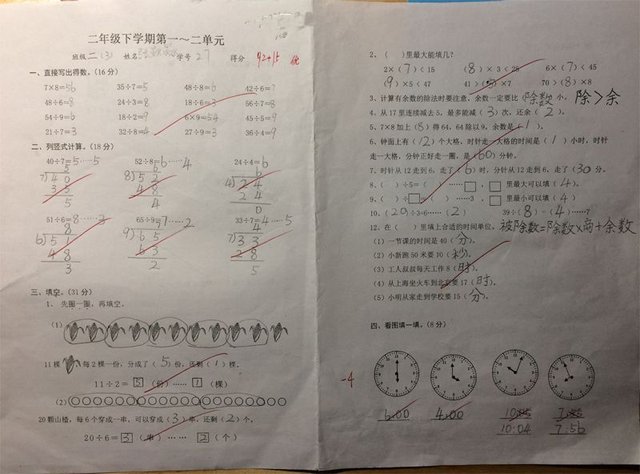 二年级下学期第一～二单元
班级 二(3) 姓名 学号 27 得分 92+15
一、直接写出得数。(16分)
7×8=56 35÷7=5 48÷8=6 42÷6=7
48÷6=8 24÷3=8 18÷6=3 56÷7=8
54÷9=6 18÷2=9 6×9=54 45÷5=9
21÷7=3 32÷8=4 27÷9=3 36÷4=9
二、列竖式计算。(18分)
40÷7=5……5 52÷8=6……4 24÷4=6
51÷6=8……3 65÷9=7……2 33÷7=4……5
三、填空。(31分)
1、先圈一圈，再填空。
(1)
11棵 每2棵一份，分成了(5)份，还剩(1)棵。
11÷2=5(份)……1(棵)
(2)
20颗山楂，每6个穿成一串，可以穿成(3)串，还剩(2)个。
20÷6=3(串)……2(个)
2、( )里最大能填几？
2×(7)<15 (8)×3<25 6×(7)<45
(9)×5<47 41>(5)×7 70>(8)×8
3、计算有余数的除法时要注意，余数一定要比(除数)小。 除>余
4、从17里连续减去5，最多能减(3)次，还余(2)。
5、7×8加上(8)得64，64除以9，余数是(1)。
6、钟面上有(12)个大格，时针走一大格的时间是(1)小时，时针
走一大格，分钟正好走一圈，是(60)分钟。
7、时针从12走到6，走了(6)时，分针从12走到6，走了(30)分。
8、( )÷5=( )……□，□里最大可以填(4)。
9、( )÷□=( )……3，□里最小可以填(4)
10、(20)÷3=6……(2) 39÷(8)=(4)……7
12、在( )里填上合适的时间单位。 被除数=除数×商+余数
(1)一节课的时间是40(分)。
(2)小新跑50米要10(秒)。
(3)工人叔叔每天工作8(时)。
(4)从上海坐火车到北京要17(时)。
(5)小明从家走到学校要15(分)。
四、看图填一填。(8分)
-4
6:00 4:00
10:04 7:56